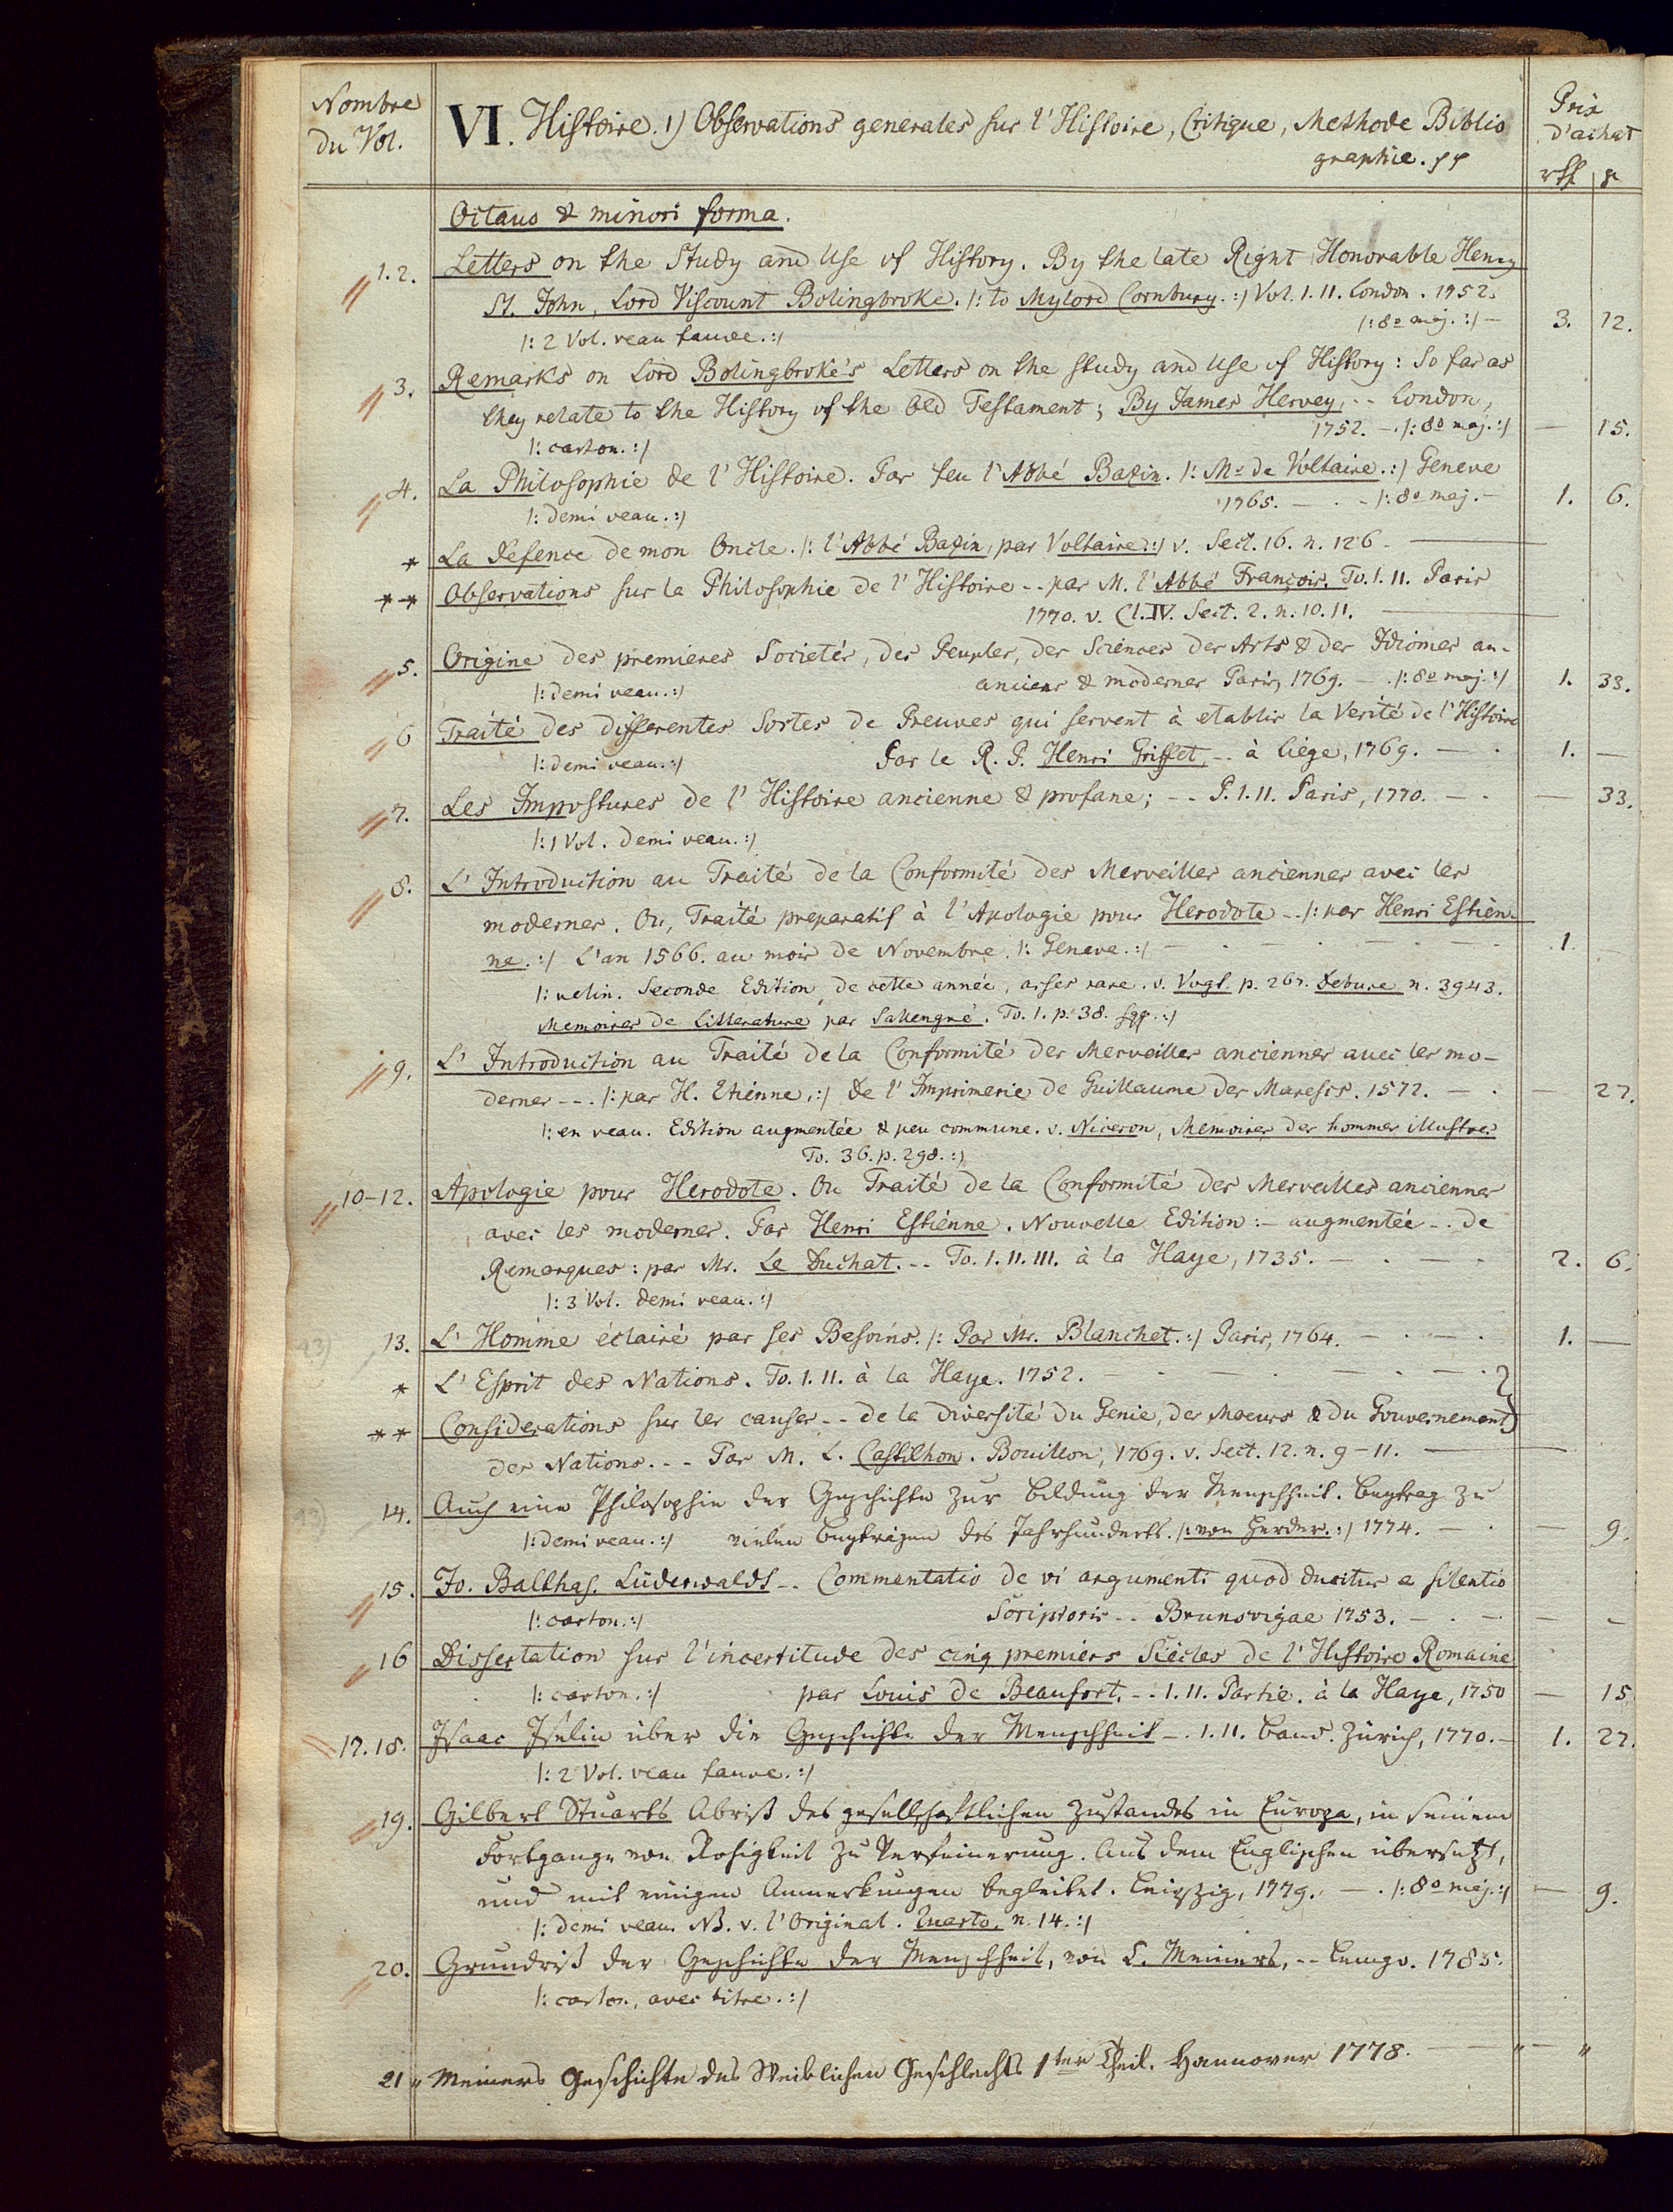 Nombre du Vol.
VI. Histoire. 1) Observations generales sur l'Histoire, Critique, Methode Biblio
graphie. pp
Prix d'achat
rth gr
Octavo & minori forma.
1. 2. Letters on the Study and Use of History. By the late Right Honorable Henry
St. John, Lord Viscount Bolingbroke. /: to Mylord Cornbury. :/ Vol. I. II. London. 1752.
/: 2 Vol. veau fauve. :/ /: 8º maj. :/ — 3. 12.
3. Remarks on Lord Bolingbroke's Letters on the Study and Use of History: So far as
they relate to the History of the Old Testament; By James Hervey, -- London,
/: carton. :/ 1752. — . /: 8º maj. :/ — 15.
4. La Philosophie de l'Histoire. Par feu l'Abbé Bazin. /: Mr de Voltaire. :/ Geneve
/: demi veau. :/ 1765. — . - /: 8º maj. — 1. 6.
* La Defence de mon Oncle. /: l'Abbé Bazin, par Voltaire :/ v. Sect. 16. n. 126. —
** Observations sur la Philosophie de l'Histoire -- par M. l'Abbé François. To. I. II. Paris
1770. v. Cl. IV. Sect. 2. n. 10. 11. —
5. Origine des premieres Societés, des Peuples, des Sciences des Arts & des Idiomes an-
/: demi veau. :/ anciens & modernes Paris, 1769. — . /: 8º maj. :/ 1. 33.
6 Traité des differentes Sortes de Preuves qui servent à etablir la Verité de l'Histoire
/: demi veau. :/ Par le R. P. Henri Griffet, -- à Liége, 1769. — . 1. —
7. Les Impostures de l'Histoire ancienne & profane; -- P. I. II. Paris, 1770. — . — 33.
/: 1 Vol. demi veau. :/
8. L'Introduction au Traité de la Conformité des Merveilles anciennes avec les
modernes. Ou, Traité preparatif à l'Apologie pour Herodote -- /: par Henri Estién-
ne. :/ L'an 1566. au mois de Novembre. /: Geneve. :/ — . — . — . — . 1.
/: velin. Seconde Edition de cette année, asses rare. v. Vogt. p. 267. Debure n. 3943.
Memoires de Litterature par Sallengré. To. 1. p. 38. sqq. :/
9. L'Introduction au Traité de la Conformité des Merveilles anciennes avec les mo-
dernes --. /: par H. Etiénne, :/ De l'Imprimerie de Guillaume des Marescs. 1572. — . — 27.
/: en veau. Edition augmentée & peu commune. v. Niceron, Memoires des hommes illustres
To. 36. p. 298. :/
10-12. Apologie pour Herodote. Ou Traité de la Conformité des Merveilles anciennes
avec les modernes. Par Henri Estiénne. Nouvelle Edition :- augmentée -. de
Remarques : par Mr. Le Duchat. -- To. I. II. III. à la Haye, 1735. — . — . 2. 6.
/: 3 Vol. demi veau. :/
13. L'Homme éclairé par ses Besoins. /: Par Mr. Blanchet. :/ Paris, 1764. — . — . 1. —
* L'Esprit des Nations. To. I. II. à la Haye. 1752. . — . — . — . }
** Considerations sur les causes -- de la Diversité du Genie, des Moeurs & du Gouvernement }
des Nations. -- Par M. L. Castilhon. Bouillon, 1769. v. Sect. 12. n. 9-11. —
14. Auch eine Philosophie der Geschichte zur Bildung der Menschheit. Beytrag zu
/: demi veau. :/ vielen Beyträgen des Jahrhunderts. /: von Herder. :/ 1774. — . — 9.
15. Jo. Balthas. Lüderwalds -- Commentatio de vi argumenti quod ducitur a silentio
/: carton. :/ Scriptoris -- Brunsvigae 1753. — . — . — —
16 Dissertation sur l'incertitude des cinq premiers Siécles de l'Histoire Romaine
/: carton. :/ par Louis de Beaufort. -- I. II. Partie. à la Haye, 1750 — 15
17. 18. Isaac Iselin über die Geschichte der Menschheit -. I. II. Band. Zürich, 1770. — 1. 27.
/: 2 Vol. veau fauve. :/
19. Gilbert Stuarts Abriß des gesellschaftlichen Zustandes in Europa, in seinem
Fortgange von Rohigkeit zu Verfeinerung. Aus dem Englischen übersetzt,
und mit einigen Anmerkungen begleitet. Leipzig, 1779. — . /: 8º maj. :/ — 9.
/: demi veau. NB. v. l'Original. Quarto. n. 14. :/
20. Grundriß der Geschichte der Menschheit, von C. Meiners, -- Lemgo. 1785.
/: carton, avec titre. :/
21 " Meiners Geschichte des Weiblichen Geschlechts 1ter Theil. Hannover 1778. — — " — "